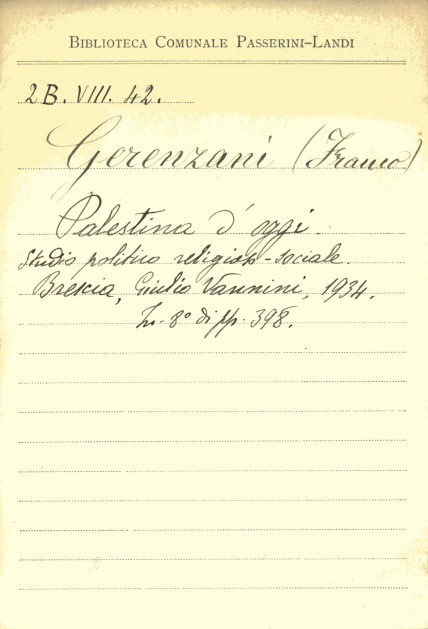 BIBLIOTECA COMUNALE PASSERINI-LANDI
2B. VIII. 42.
Gerenzani (Franco)
Palestina d'oggi.
Studio politico religioso-sociale.
Brescia, Giulio Vannini, 1934.
In-8° di pp. 398.